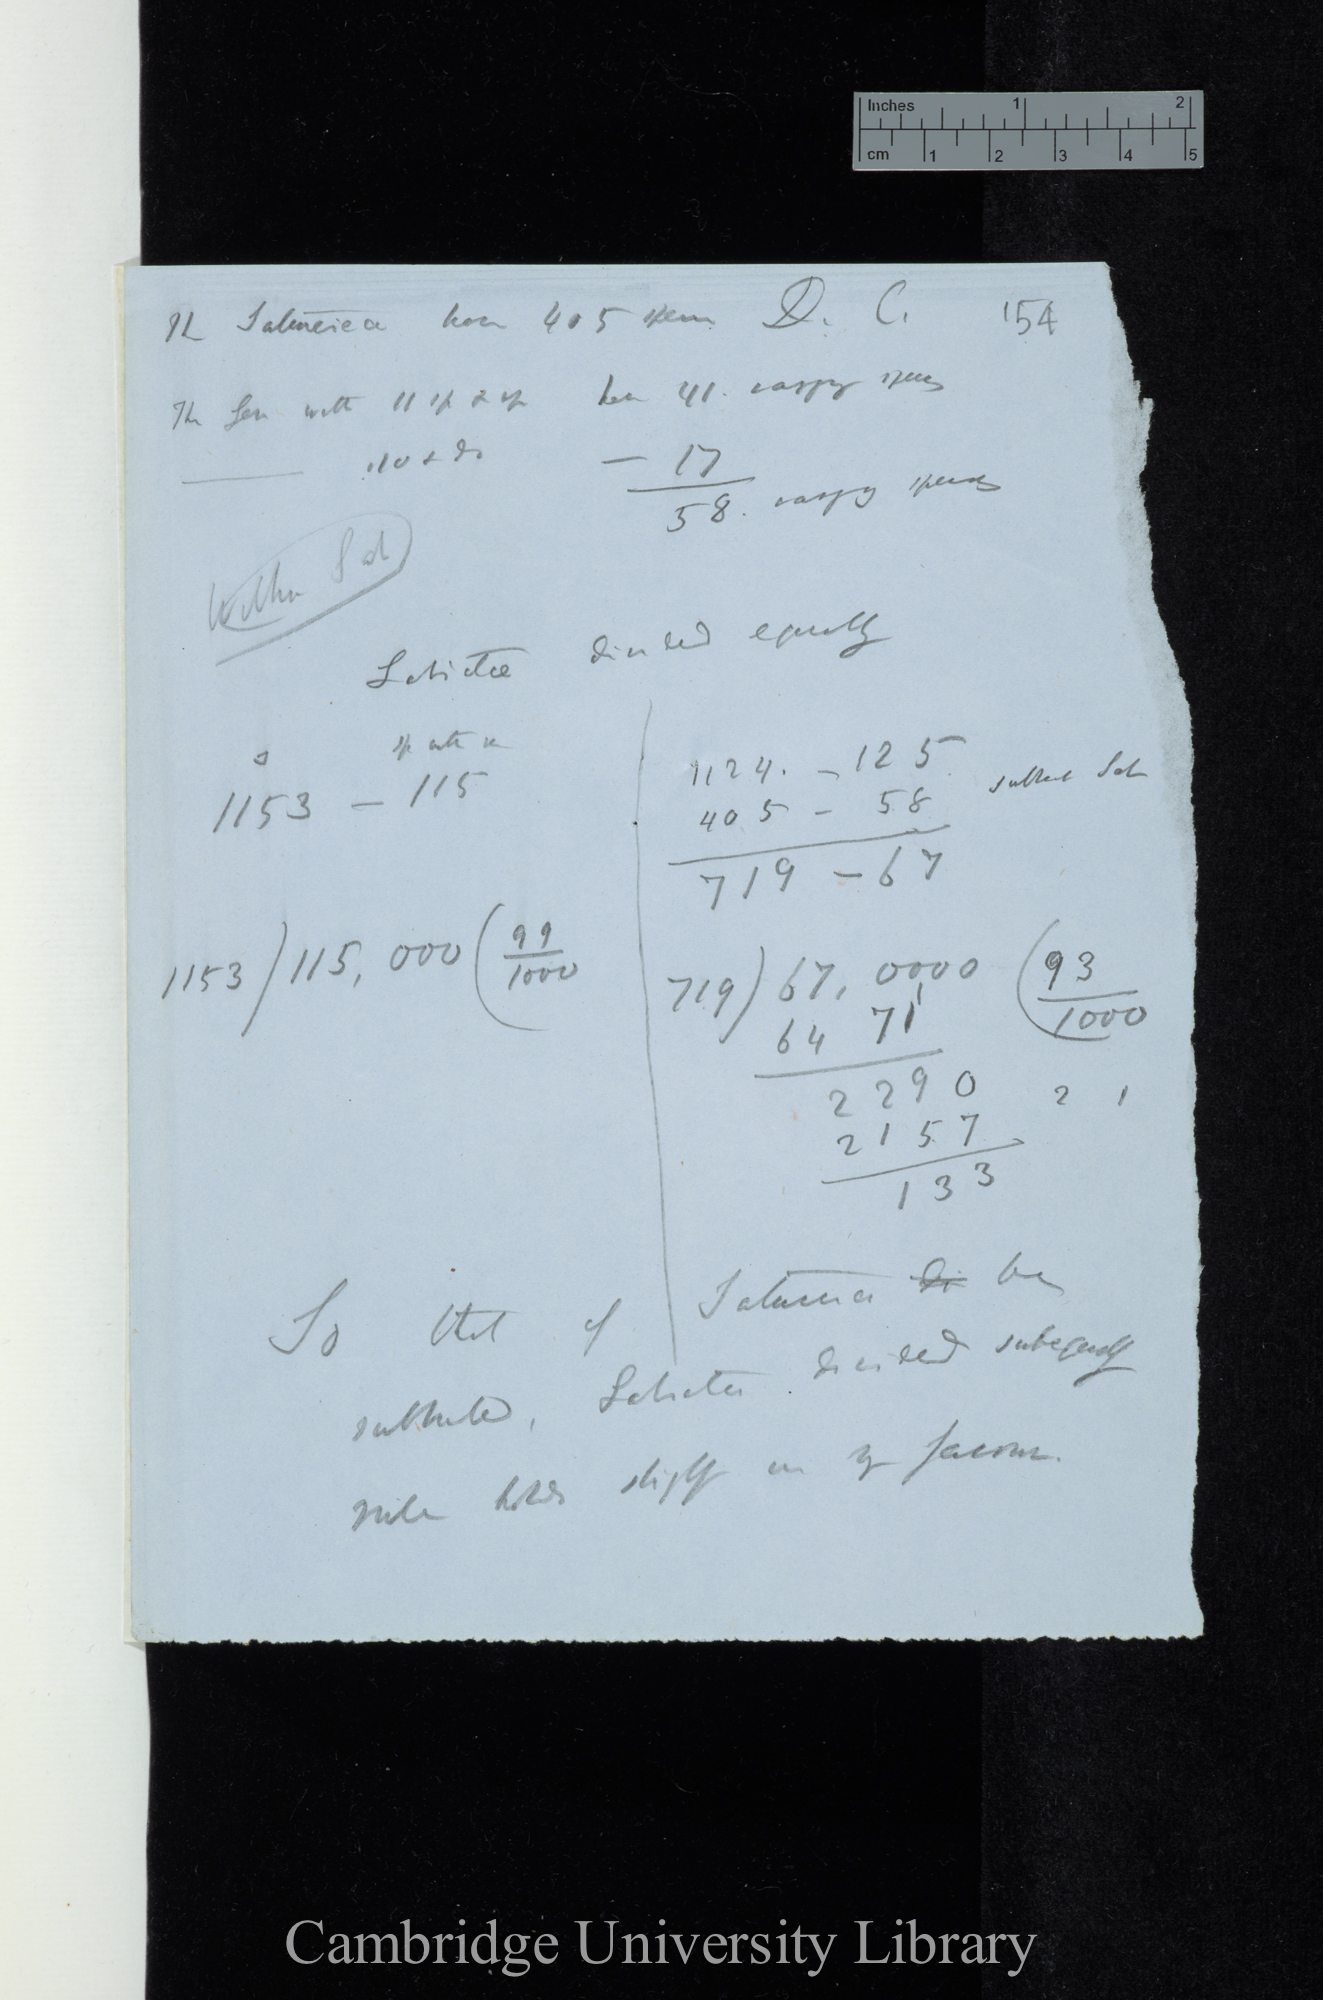 Inches 1 2
cm 1 2 3 4 5
The Satureiea have 405 species D. C. 154
The Gen with 11 sp & up have 41. varying species
——— 110 & do — 17
58. varying species
Without Sat
Labiatæ divided equally
sp with v
1153 — 115
1124. — 125
405 — 58 without Sat
719 — 67
1153 ) 115, 000 ( 99/1000
719 ) 67, 0000 ( 93/1000
64 71
2290 2 1
2157
133
So that if Satureiea be
subtracted, Labiatæ divided subequally
rule holds slightly in my favour.
Cambridge University Library